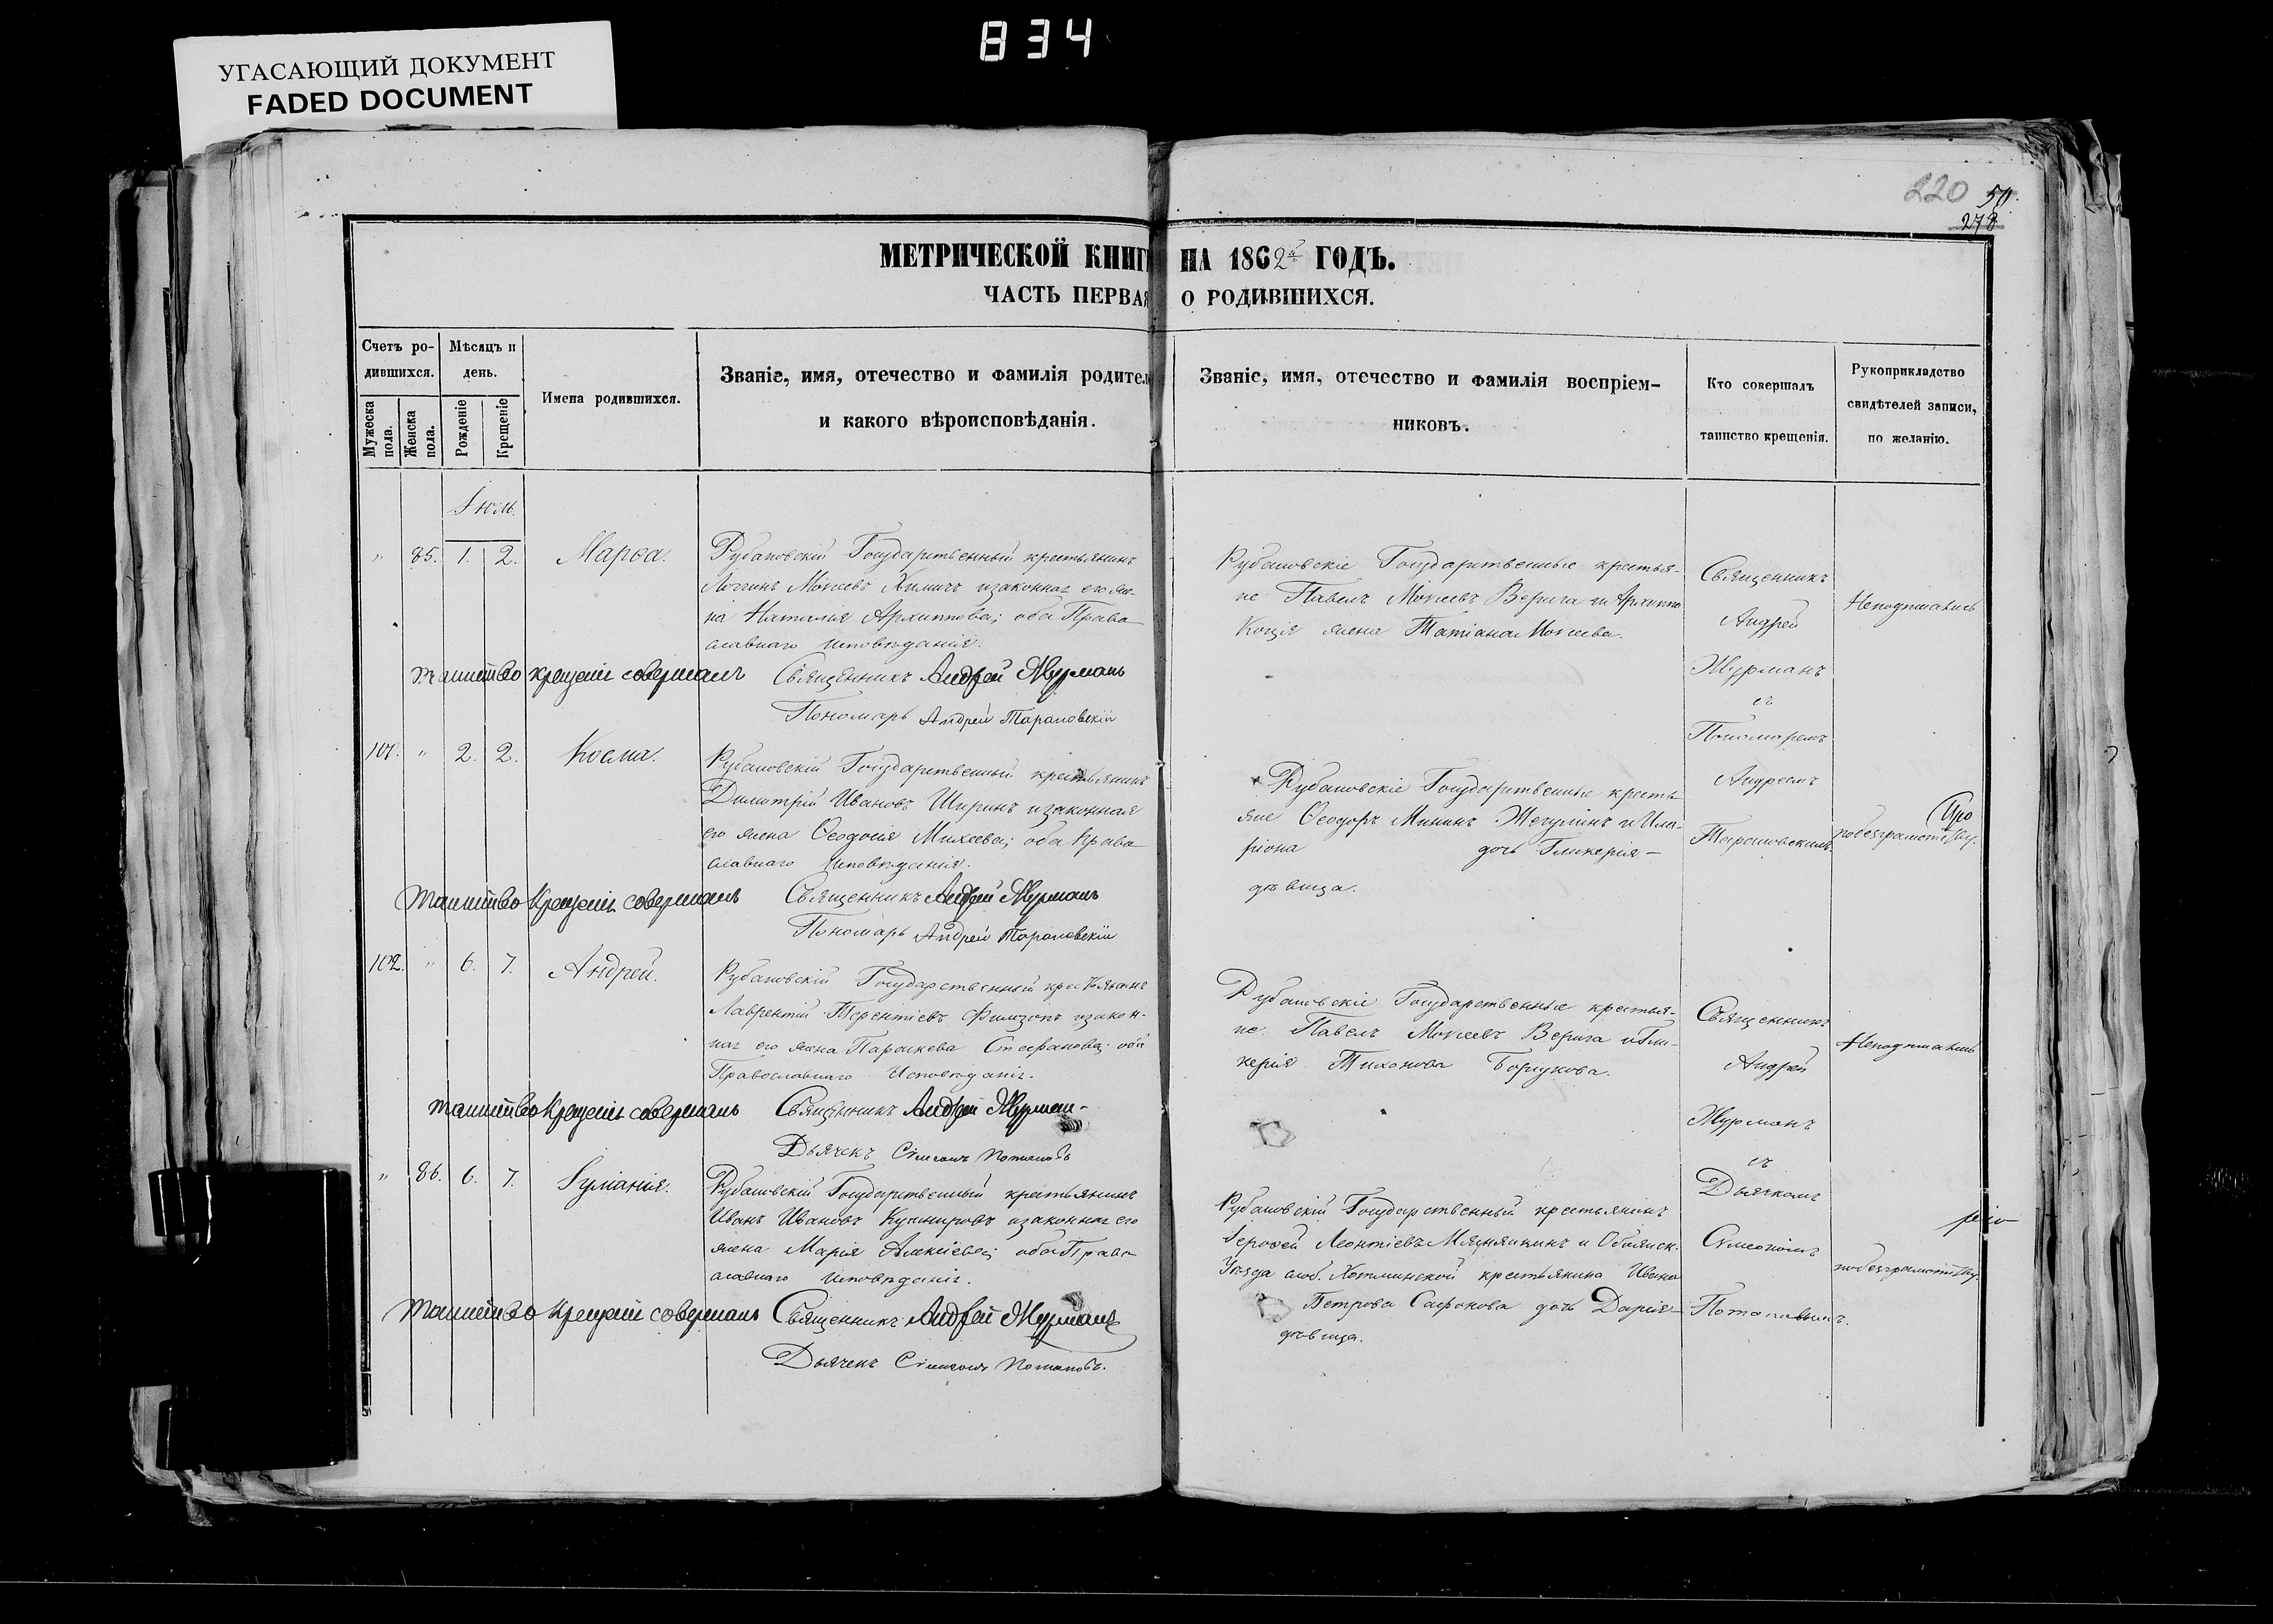 834
УГАСАЮЩИЙ ДОКУМЕНТ
FADED DOCUMENT
220
278
МЕТРИЧЕСКОЙ КНИГ НА 1862 ГОДЪ.
ЧАСТЬ ПЕРВАЯ О РОДИВШИХСЯ.
Счетъ ро-
дившихся.
Мужеска пола.
Женска пола.
Мѣсяцъ и
день.
Рожденіе
Крещеніе
Имена родившихся.
Званіе, имя, отечество и фамилія родител
и какого вѣроисповѣданія.
Званіе, имя, отечество и фамилія воспріем-
никовъ.
Кто совершалъ
таинство крещенія.
Рукоприкладство
свидѣтелей записи,
по желанію.
Іюль.
" 85. 1. 2. Марѳа.
Рубановскій Государственный крестьянинъ
Логгинъ Мокіевъ Химичъ и законная его же-
на Наталья Архиппова; оба Право
славнаго исповѣданія.
Рубановскіе Государственные крестья-
не Павелъ Мокіевъ Верига и Архиппа
жена Татіана Мокіева.
Таинство крещенія совершалъ Священникъ Андрей Журманъ
Пономарь Андрей Тарановскій
Священникъ
Андрей
Журманъ
съ
Пономаремъ
Андреемъ
Тарановскимъ.
101. " 2. 2. Косма.
Рубановскій Государственный крестьянинъ
Димитрій Ивановъ Ширинъ и законная
его жена Ѳеодосія Михеева; оба Право
славнаго исповѣданія.
Рубановскіе Государственные кресть
яне Ѳеодоръ Мининъ и Ила-
ріона дочь Гликерія -
дѣвица.
по безграмотству.
Таинство Крещенія совершалъ Священникъ Андрей Журманъ
Пономарь Андрей Тарановскій
102. " 6. 7. Андрей.
Рубановскій Государственный крестьянинъ
Лаврентій Терентіевъ и закон-
ная его жена Параскева Стефанова; оба
Православнаго Исповѣданія.
Рубановскіе Государственные крестья-
не Павелъ Мокіевъ Верига и Гли-
керія Тихонова
Таинство Крещенія совершалъ Священникъ Андрей Журман-
Дьячекъ Сѵмеонъ Потаповъ
Священникъ
Андрей
Журманъ
съ
Дьячкомъ
Сѵмеономъ
Потаповымъ.
" 86. 6. 7. Іуліанія.
Рубановскій Государственный крестьянинъ
Иванъ Ивановъ Кушнировъ и законная его
жена Марія Алексіева; оба Право
славнаго исповѣданія.
Рубановскій Государственный крестьянинъ
Іероѳей Леонтіевъ и Обоянск.
Уѣзда слоб. крестьянина Ивана
Петрова Сафонова дочь Дарія -
дѣвица.
по безграмотству.
Таинство Крещенія совершалъ Священникъ Андрей Журманъ
Дьячекъ Сѵмеонъ Потаповъ.